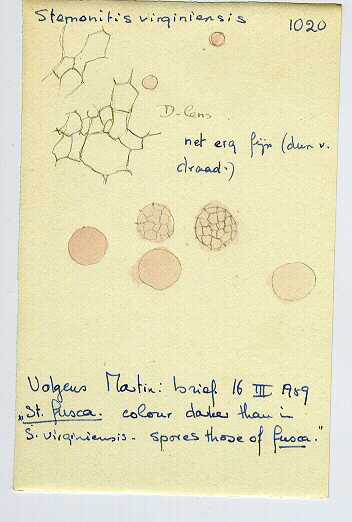 Stemonitis virginiensis 1020
D-lens
net erg fijn (dun v.
draad.)
Volgens Martin: brief 16 III 1989
„St. fusca. colour darker than in
S. virginiensis - spores those of fusca."